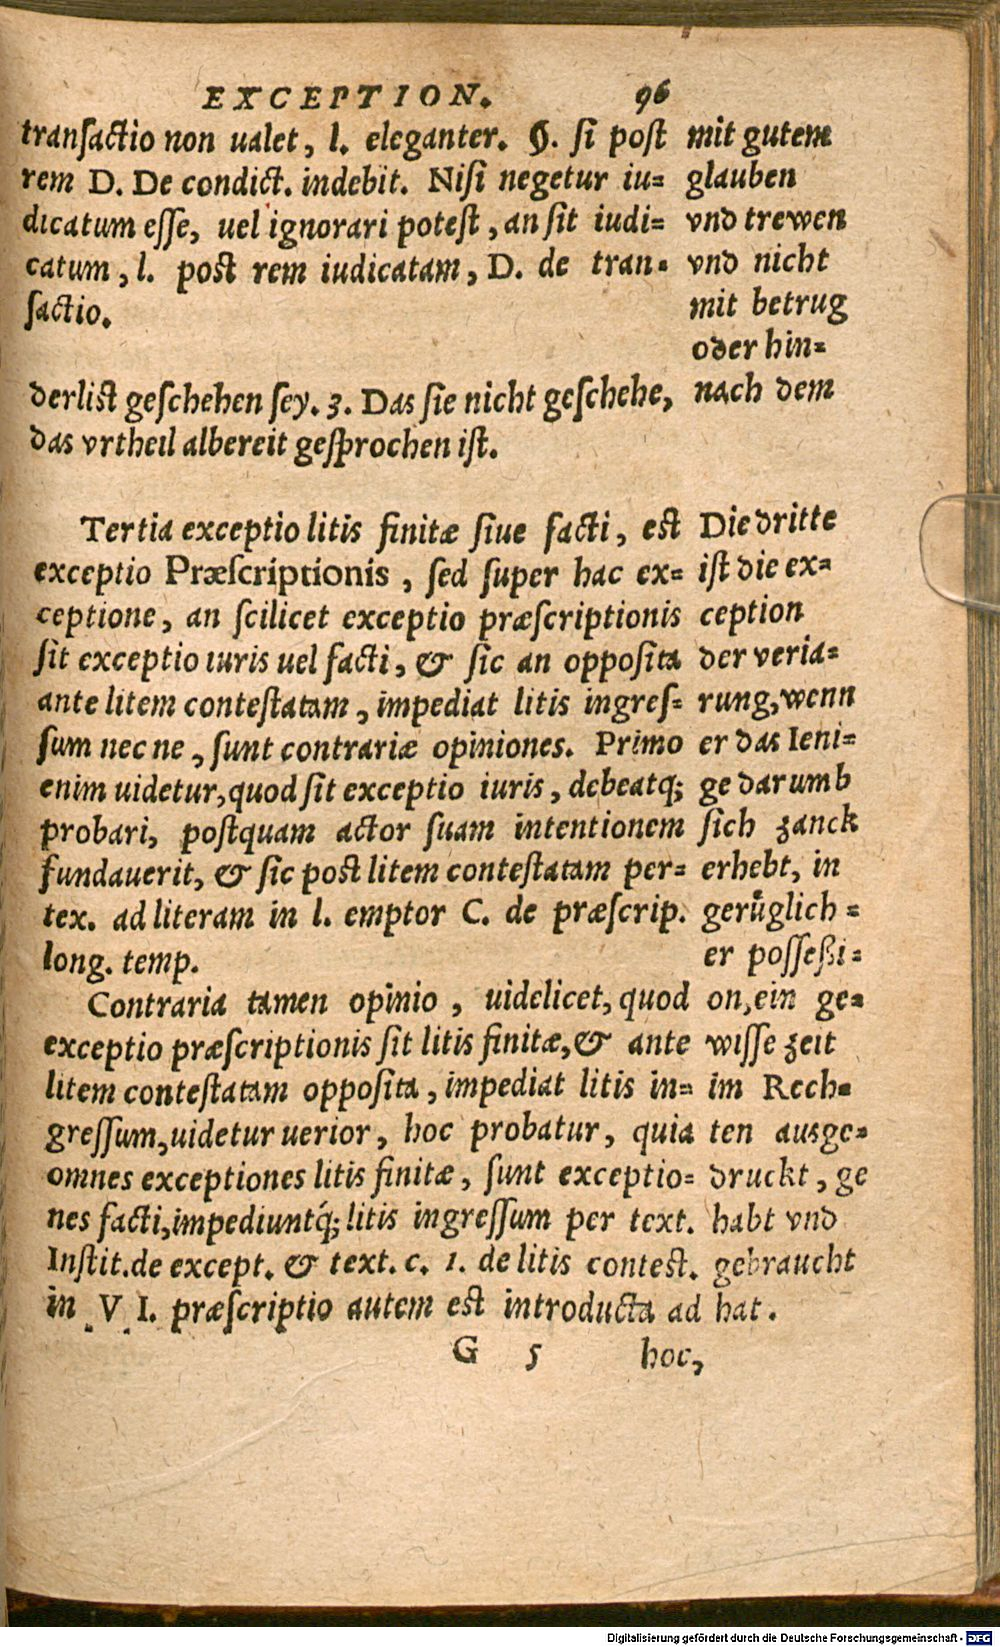 EXCEPTION. 96
transactio non ualet, l. eleganter. §. si post
rem D. De condict. indebit. Nisi negetur iu=
dicatum esse, uel ignorari potest, an sit iudi=
catum, l. post rem iudicatam, D. de tran=
sactio.
mit gutem
glauben
vnd trewen
vnd nicht
mit betrug
oder hin=
derlist geschehen sey. 3. Das sie nicht geschehe, nach dem
das vrtheil albereit gesprochen ist.
Tertia exceptio litis finitæ siue facti, est
exceptio Præscriptionis, sed super hac ex=
ceptione, an scilicet exceptio præscriptionis
sit exceptio iuris uel facti, & sic an opposita
ante litem contestatam, impediat litis ingres=
sum nec ne, sunt contrariæ opiniones. Primo
enim uidetur, quod sit exceptio iuris, debeatq;
probari, postquam actor suam intentionem
fundauerit, & sic post litem contestatam per=
tex. ad literam in l. emptor C. de præscrip.
long. temp.
Contraria tamen opinio, uidelicet, quod
exceptio præscriptionis sit litis finitæ, & ante
litem contestatam opposita, impediat litis in=
gressum, uidetur uerior, hoc probatur, quia
omnes exceptiones litis finitæ, sunt exceptio=
nes facti, impediuntq́; litis ingressum per text.
Instit. de except. & text. c. 1. de litis contest.
in VI. præscriptio autem est introducta ad
Die dritte
ist die ex=
ception
der veria=
rung, wenn
er das Ieni=
ge darumb
sich zanck
erhebt, in
gerůglich=
er posseßi=
on, ein ge=
wisse zeit
im Rech=
ten ausge=
druckt, ge
habt vnd
gebraucht
hat.
G 5 hoc,
Digitalisierung gefördert durch die Deutsche Forschungsgemeinschaft - DFG